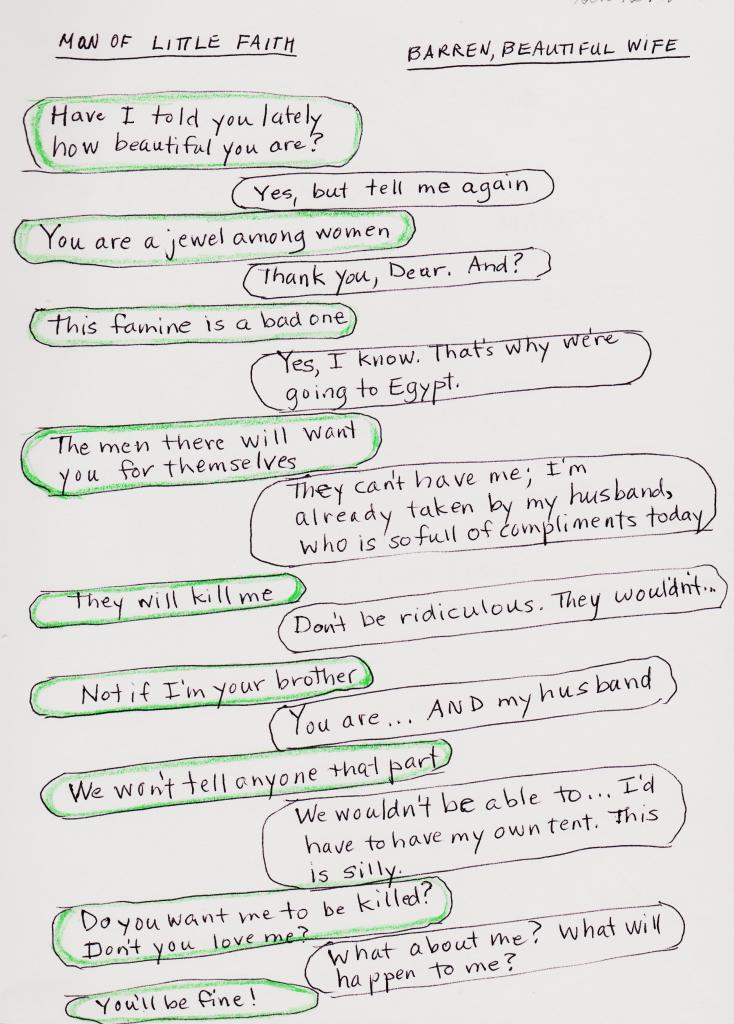 MAN OF LITTLE FAITH
BARREN, BEAUTIFUL WIFE
Have I told you lately
how beautiful you are?
Yes, but tell me again
You are a jewel among women
Thank you, Dear. And?
This famine is a bad one
Yes, I know. That's why we're
going to Egypt.
The men there will want
you for themselves
They can't have me; I'm
already taken by my husband,
who is so full of compliments today
They will kill me
Don't be ridiculous. They wouldn't...
Not if I'm your brother
You are... AND my husband
We won't tell anyone that part
We wouldn't be able to... I'd
have to have my own tent. This
is silly.
Do you want me to be killed?
Don't you love me?
What about me? What will
happen to me?
You'll be fine!